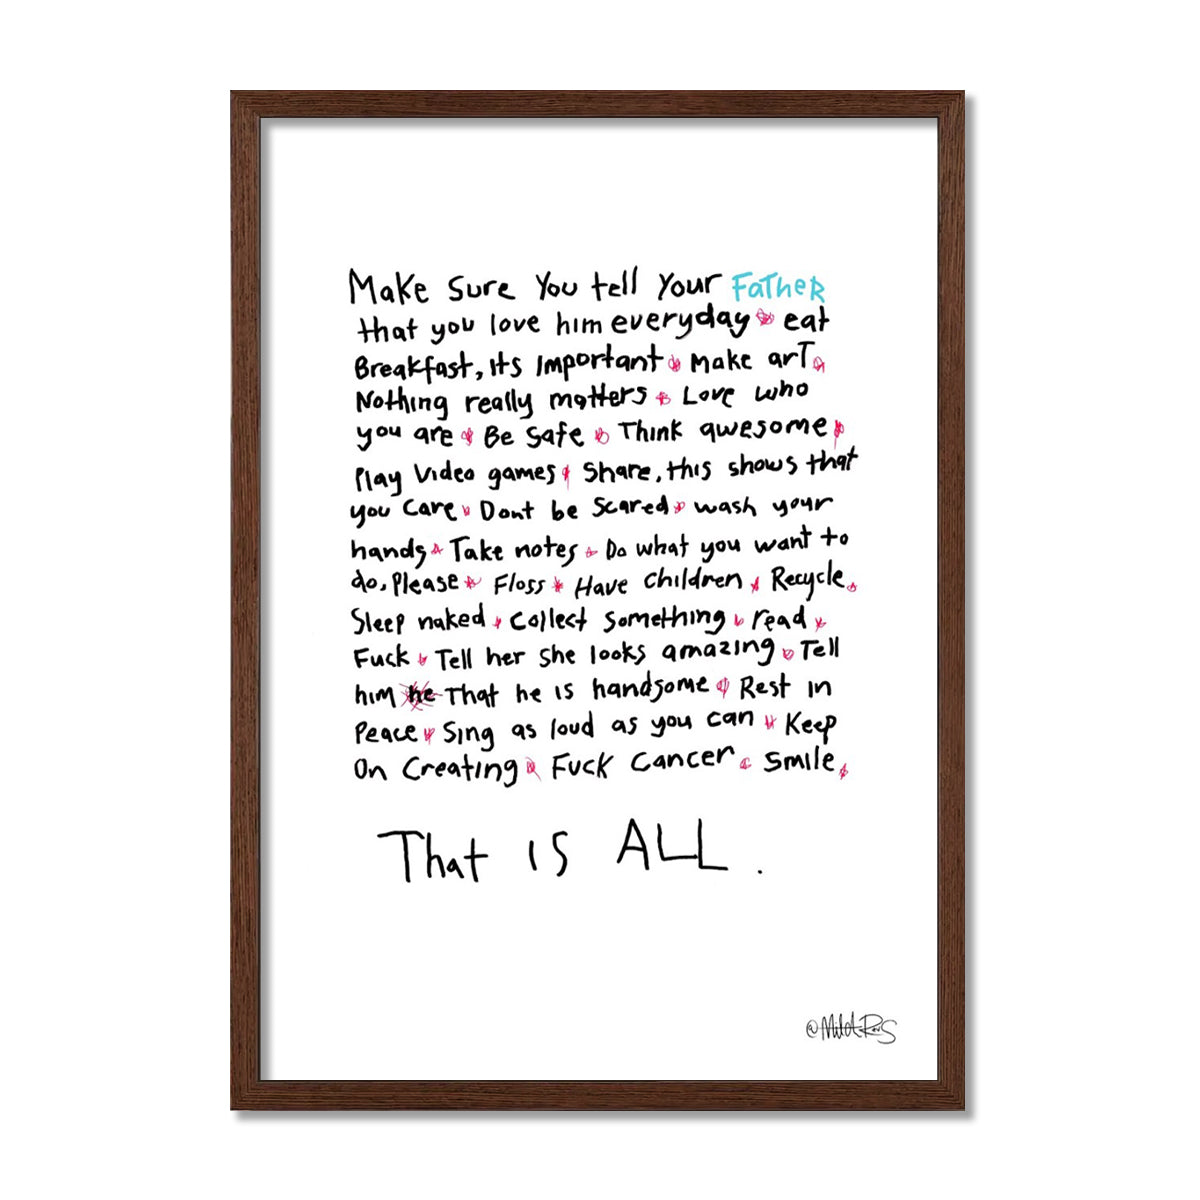 Make Sure You tell Your Father
that you love him everyday eat
Breakfast, its important make art
Nothing really matters Love who
you are Be Safe Think awesome
Play Video games Share, this shows that
you Care Dont be Scared wash your
hands Take notes Do what you want to
do, Please Floss Have children Recycle
Sleep naked Collect Something read
Fuck Tell her She looks amazing Tell
him he That he is handsome Rest in
Peace Sing as loud as you can Keep
On Creating Fuck Cancer Smile
That IS ALL.